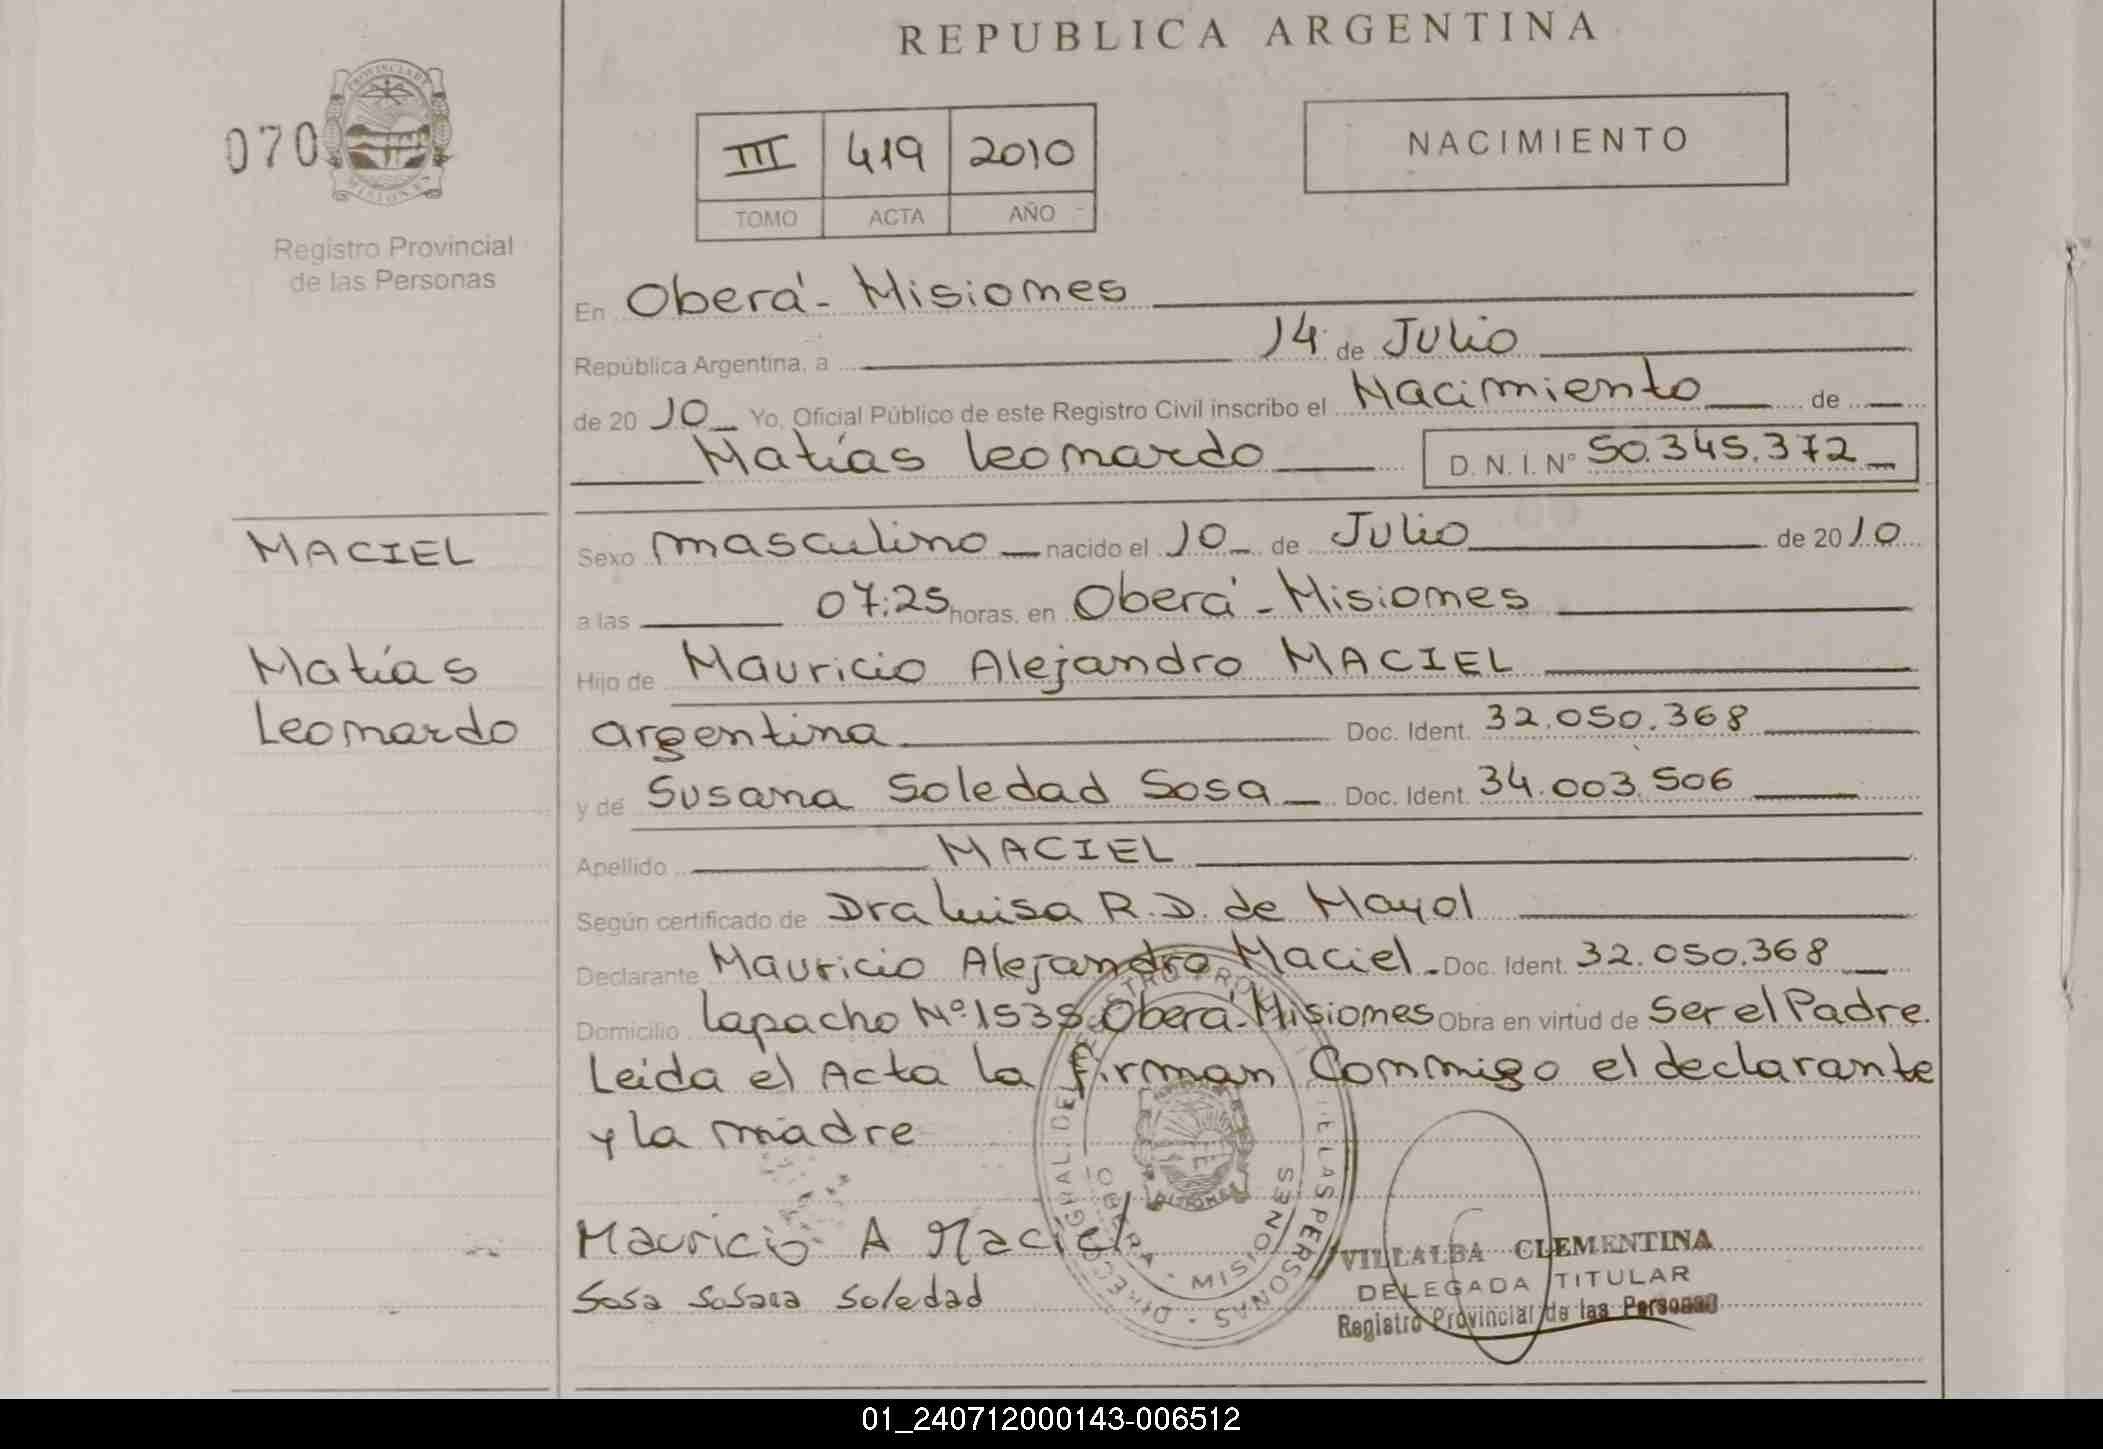 REPUBLICA ARGENTINA
070
PROVINCIA DE
MISIONES
Registro Provincial
de las Personas
III 419 2010
TOMO ACTA AÑO
NACIMIENTO
En Oberá - Misiones
República Argentina, a 14 de Julio
de 20 10 Yo, Oficial Público de este Registro Civil inscribo el Nacimiento de
Matías Leonardo D.N.I. N° 50.345.372
MACIEL
Matías
Leonardo
Sexo masculino nacido el 10 de Julio de 2010
a las 07:25 horas, en Oberá - Misiones
Hijo de Mauricio Alejandro MACIEL
argentina Doc. Ident. 32.050.368
y de Susana Soledad Sosa Doc. Ident. 34.003.506
Apellido MACIEL
Según certificado de Dra Luisa R.D. de Mayol
Declarante Mauricio Alejandro Maciel. Doc. Ident. 32.050.368
Domicilio Lapacho Nº 1535 Oberá - Misiones Obra en virtud de Ser el Padre.
Leida el Acta la firman Conmigo el declarante
y la madre
Mauricio A Maciel
Sosa Susana Soledad
OBERA - MISIONES
VILLALBA CLEMENTINA
DELEGADA TITULAR
Registro Provincial de las Personas
01_240712000143-006512